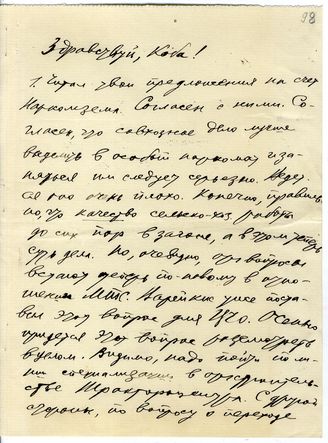 98
Здравствуй, Коба!
1. Читал твои предложения на счет
Наркомзема. Согласен с ними. Со-
гласен, что совхозное дело лучше
выделить в особый наркомат и за-
няться им следует серьезно. Ведет-
ся оно очень плохо. Конечно, правиль-
но, что качество сельско-хоз. работ
до сих пор в загоне, а в этом теперь
суть дела. Но, очевидно, эти вопросы
встают теперь по-новому в отно-
шении МТС. Варейкис уже поста-
вил этот вопрос для ЦЧО. Осенью
придется этот вопрос рассмотреть
в целом. Видимо, надо пойти по ли-
нии специализации в
стве Трактороцентра. С другой
стороны, по вопросу о переходе